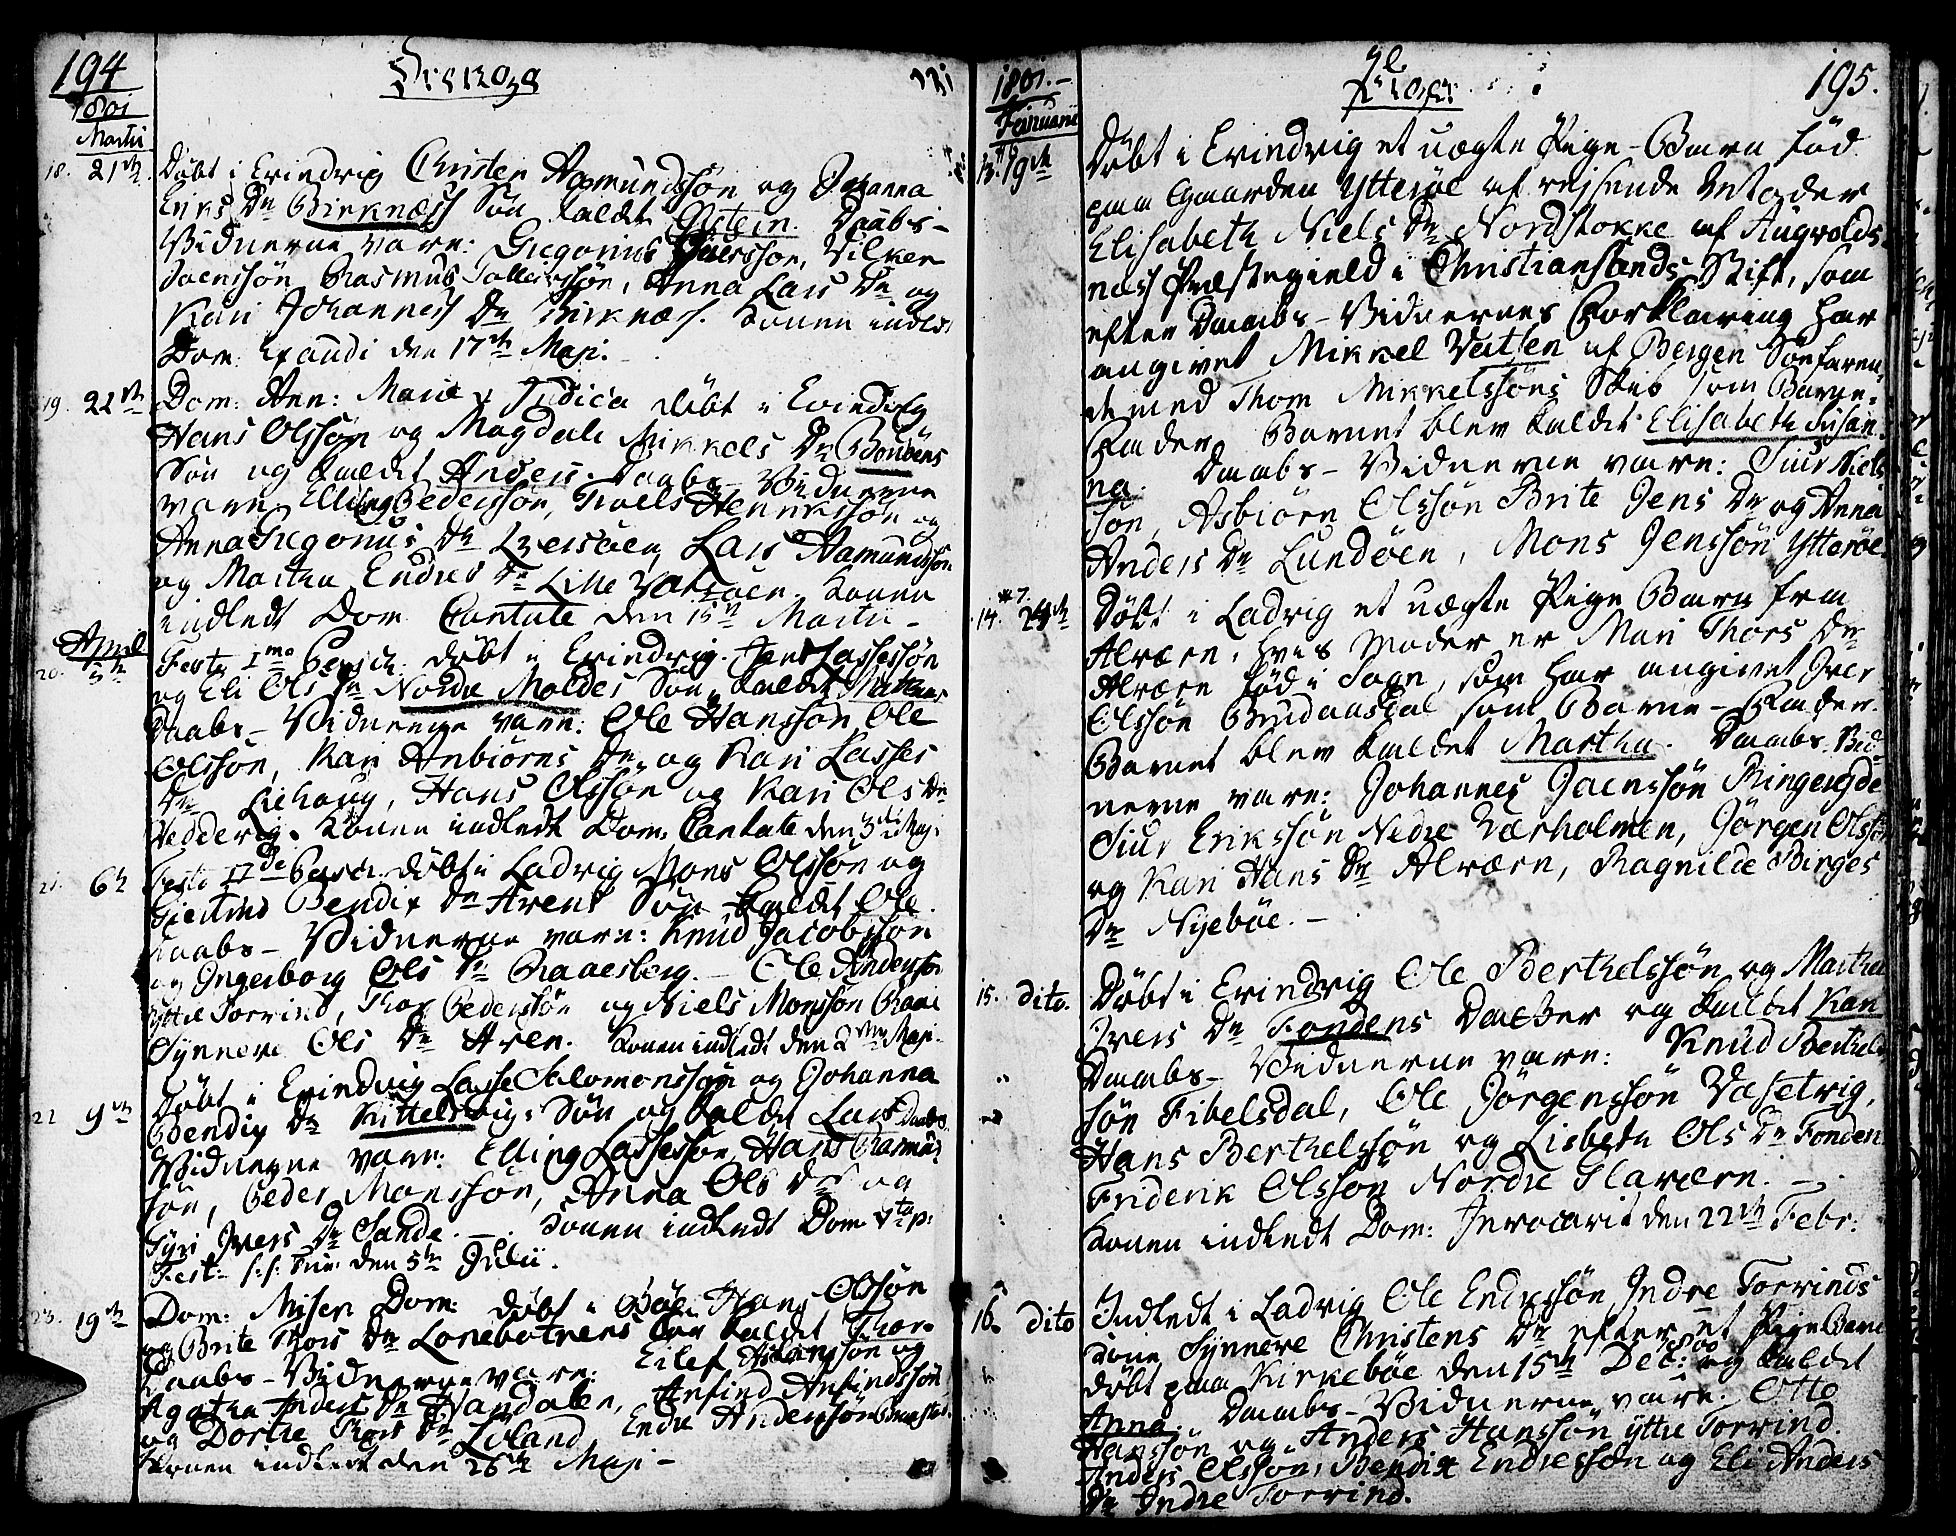 194
1801
Martii
18. 21de Døbt i Evindvig Christen Aamundssøn og Johanna
Eriks Dr Birknæss Søn kaldet Østein. Daabs-
Vidnerne vare: Gregorius Iversson, Vilken
Joenssøn Rasmus Tollevssøn, Anna Lars Dr og
Kari Johannes Dr Birknæss. Konen indledt
Dom. Exaudi den 17de Maji.
19. 22de Dom: Ann: Mariæ & Judica døbt i Evindvig
Hans Olssøn og Magdale Mikkels Dr Boubens
Søn og kaldet Anders. Daabs-Vidnerne
vare Elling Pederssøn, Troels Henrikssøn og
Anna Gregorius Dr Qversøen, Lars Aamundssøn
og Martha Endres Dr Lille Vatsøen. Konen
indledt Dom Cantate den 15de Martii -
April
20. 5te Festo Imo Pasch. døbt i Evindvig. Jens Lassessøn
og Eli Ols Dr Nordre Moldes Søn kaldet Mathias
Daabs-Vidnerne vare: Ole Hanssøn, Ole
Olssøn, Kari Anbiørns Dr og Kari Lasses
Dr Liehoug, Hans Olssøn og Kari Ols Dr
Veddevig. Konen indledt Dom. Cantate den 3die Maji
21. 6te Festo IIde Pasch. døbt i Ladvig Mons Olssøn og
Giertrud Bendix Dr Arens Søn kaldet Ole.
Daabs-Vidnerne vare: Knud Jacobssøn
og Ingeborg Ols Dr Raaesberg. - Ole Anderssøn
yttre Torvind, Thor Pederssøn og Niels Monssøn
Synneve Ols Dr Aren. Konen indledt den 2den Maji.
22 9de Døbt i Evindvig Lasse Salomonssøn og Johanna
Bendix Dr Kittelsvigs Søn og kaldet Lars Daabs-
Vidnerne vare: Elling Lassessøn, Hans Rasmus-
søn, Peder Monssøn, Anna Ols Dr og
Gyri Ivers Dr Sande. - Konen indledt Dom Vta p:
Fest: s: s: Trin den 5te Julii.
23. 19de Dom: Miser Dom: døbt i Bøe Hans Olssøn
og Brite Thors Dr Lonebotnens Søn kaldet Thor.
Daabs-Vidnerne vare: Eilef Asbiørnssøn og
Agatha Anders Dr Handalen, Anfind Anfindssøn
og Dorthe Thors Dr Løland, Endre Anderssøn
Konen indledt den 26de Maji -
1801. -
Februarii
195.
13. 19de Døbt i Evindvig et uægte Pige-Barn fød
paa Gaarden Ytterøe af reisende Moder
Elisabeth Niels Dr Nordstokke af Augvolds-
næs Præstegield i Christiansands Stift, som
efter Daabs-Vidnernes Forklaring har
angivet Mikkel Veitsen af Bergen Søefaren-
de med Thom Mikkelssøns Skib som Barne-
Fader. Barnet blev kaldet Elisabeth Susan-
na. Daabs-Vidnerne vare: Siur Niels-
søn, Asbiørn Olssøn Brite Jens Dr og Anna
Anders Dr Lundøen, Mons Jenssøn Ytterøe.
14. 24de Døbt i Ladvig et uægte Pige Barn fra
Alværn, hvis Moder er Mari Thors Dr
Alværn fød i Sogn, som har angivet Iver
Olssøn Brudansdal som Barne-Fader.
Barnet blev kaldet Martha. Daabs-Vid-
nerne vare: Johannes Joenssøn Ringereyde
Siur Erikssøn Nedre Værholmen, Jørgen Olssøn
og Kari Hans Dr Alværn, Ragnilde Birges
Dr Nyebøe. -
15. dito. Døbt i Evindvig Ole Berthelssøn og Martha
Ivers Dr Fondens Daatter og kaldet Kari
Daabs-Vidnerne vare: Knud Berthels-
søn Fibelsdal, Ole Jørgenssøn Vasetvig,
Hans Berthelssøn og Lisbeth Ols Dr Fonden
Friderik Olssøn Nordre Glaværn. -
Konen indledt Dom: Invocavit den 22de Febr:
16. dito Indledt i Ladvig Ole Endressøn Indre Torvinds
Kone Synneve Christens Dr efter et Pige Barn
døbt paa Kirkebøe den 15de Dec: 1800 og kaldet
Anna. Daabs-Vidnerne vare: Otto
Hanssøn og Anders Hanssøn yttre Torvind.
Anders Olssøn, Bendix Endressøn og Eli Anders
Dr Indre Torvind.